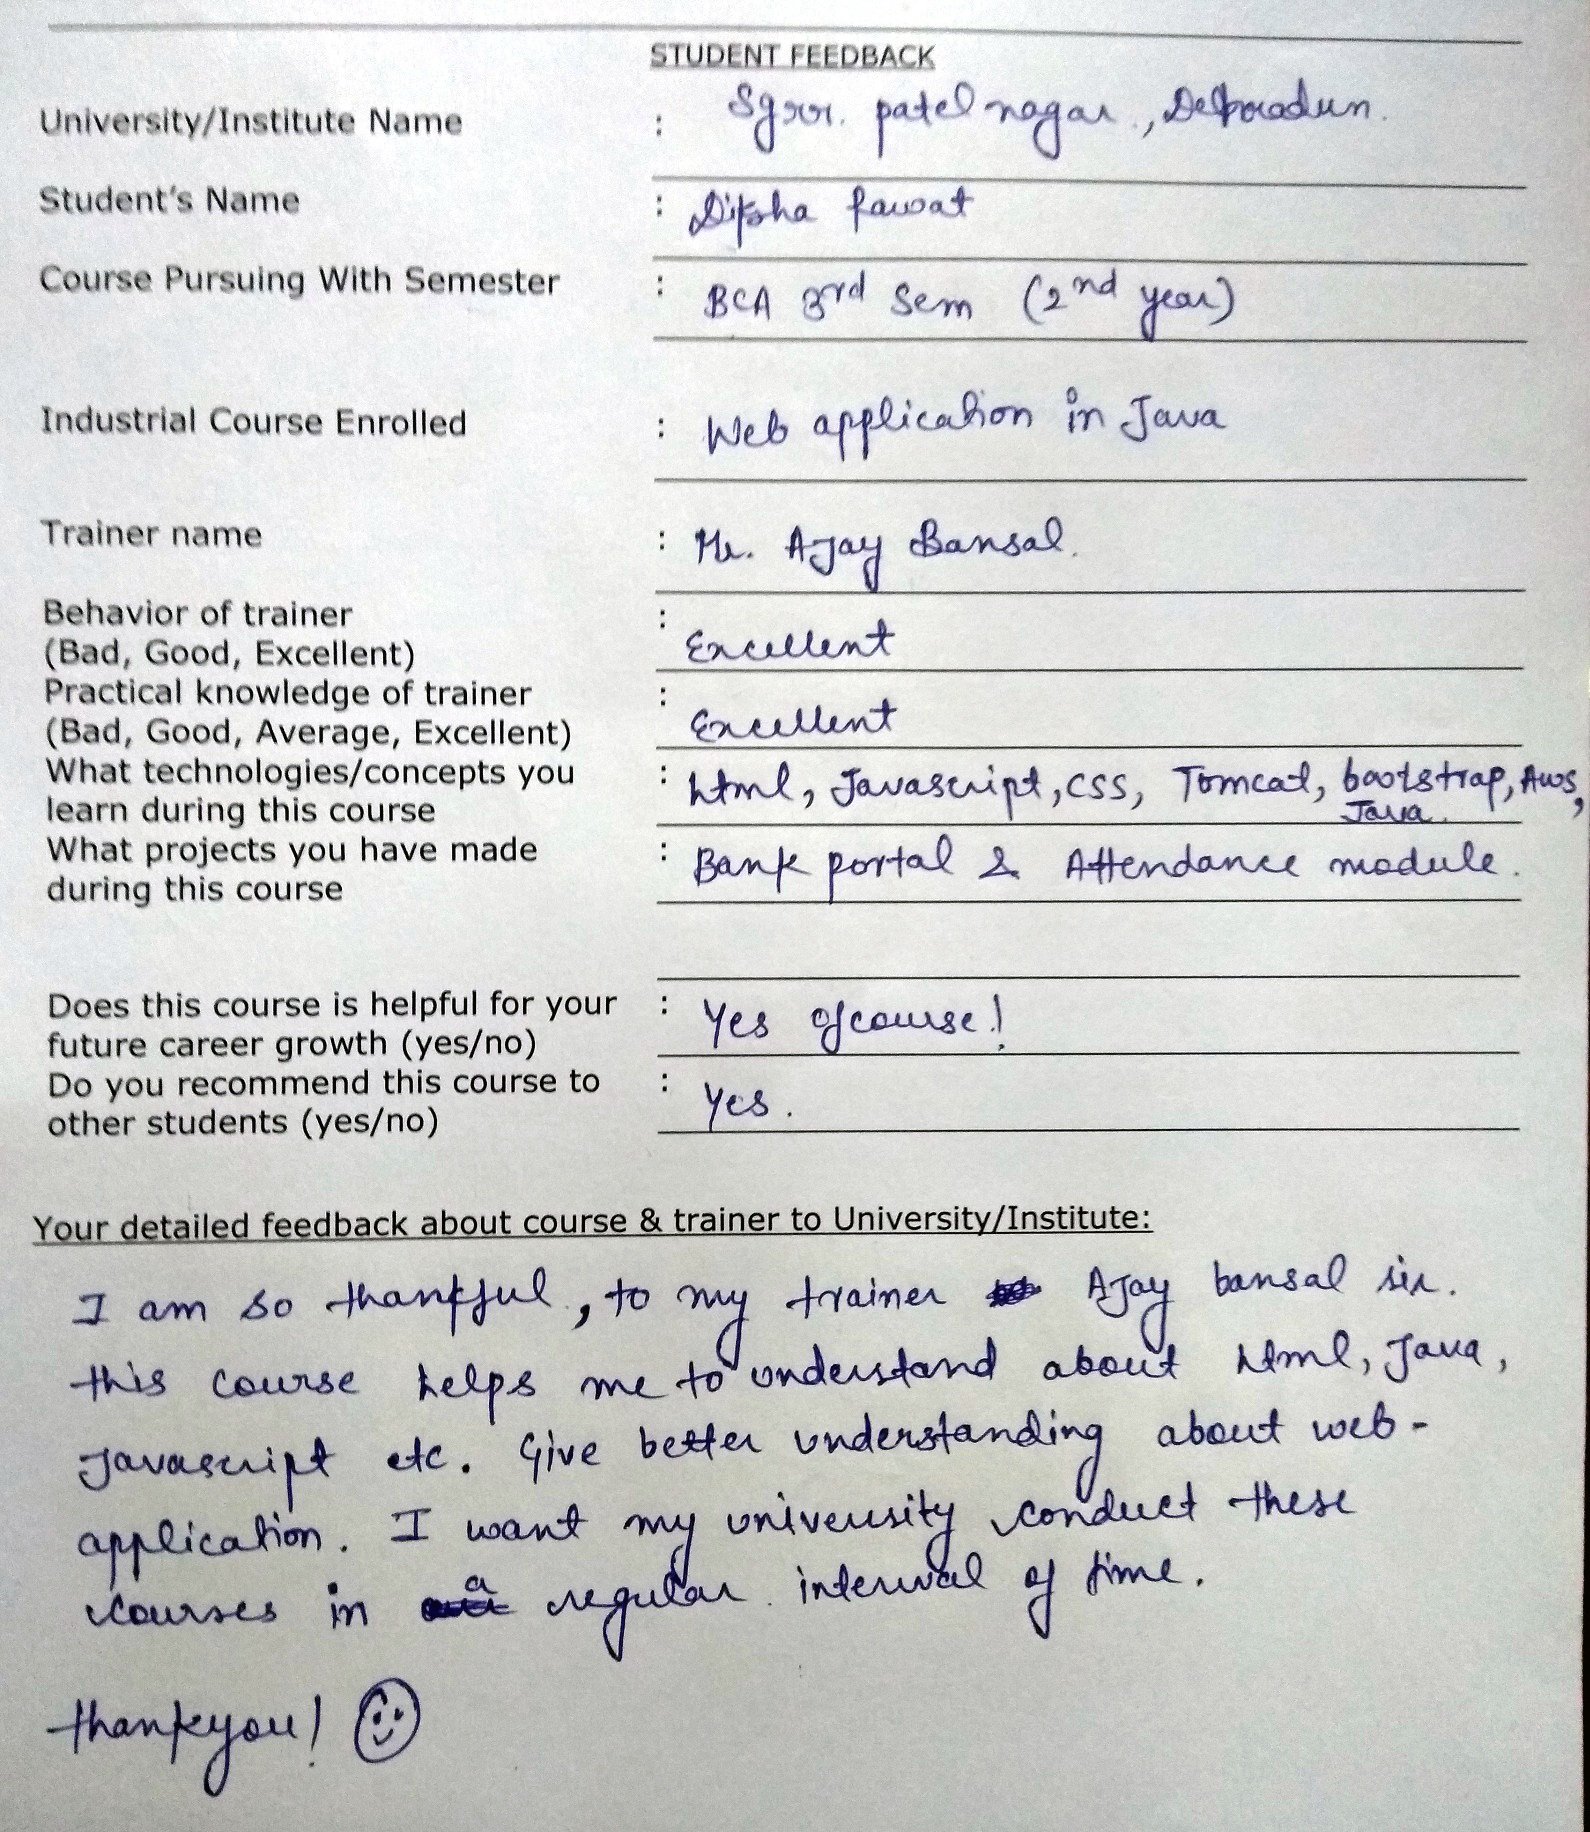 STUDENT FEEDBACK
University/Institute Name : Sgrr. patel nagar, Dehradun.
Student's Name : Diksha Rawat
Course Pursuing With Semester : BCA 3rd Sem (2nd year)
Industrial Course Enrolled : Web application in Java
Trainer name : Mr. Ajay Bansal.
Behavior of trainer :
(Bad, Good, Excellent) Excellent
Practical knowledge of trainer :
(Bad, Good, Average, Excellent) Excellent
What technologies/concepts you : html, Javascript, CSS, Tomcat, bootstrap, Aws,
learn during this course Java.
What projects you have made : Bank portal & Attendance module.
during this course
Does this course is helpful for your : Yes ofcourse!
future career growth (yes/no)
Do you recommend this course to : Yes.
other students (yes/no)
Your detailed feedback about course & trainer to University/Institute:
I am so thankful, to my trainer Ajay bansal sir.
this course helps me to understand about html, Java,
Javascript etc. Give better understanding about web-
application. I want my university conduct these
courses in a regular interval of time.
thankyou!